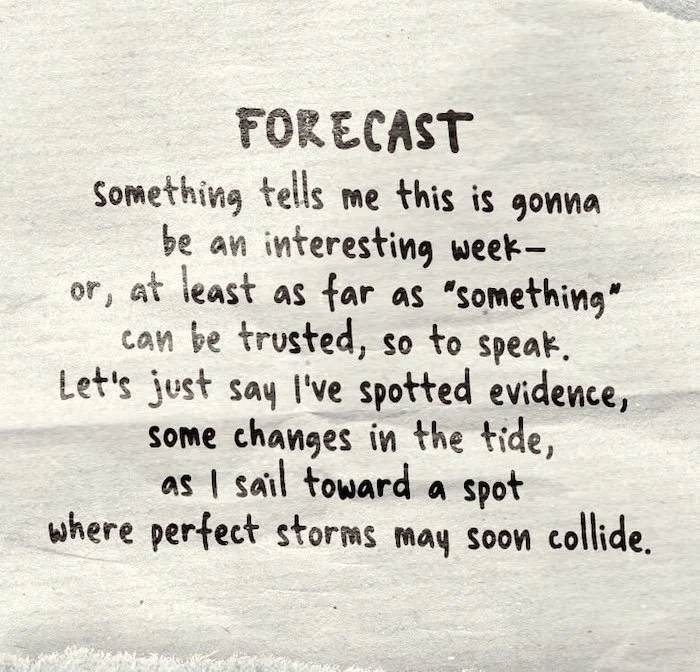 FORECAST
Something tells me this is gonna
be an interesting week—
or, at least as far as "something"
can be trusted, so to speak.
Let's just say I've spotted evidence,
some changes in the tide,
as I sail toward a spot
where perfect storms may soon collide.